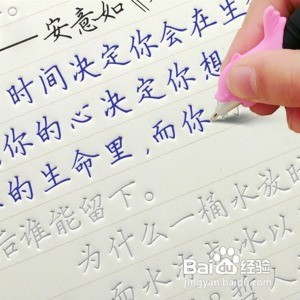 ——安意如《
时间决定你会在生
你的心决定你想
的生命里,而你
后谁能留下。
为什么一桶水放时
而水
以
Baidu 经验
jingyan.baidu.com